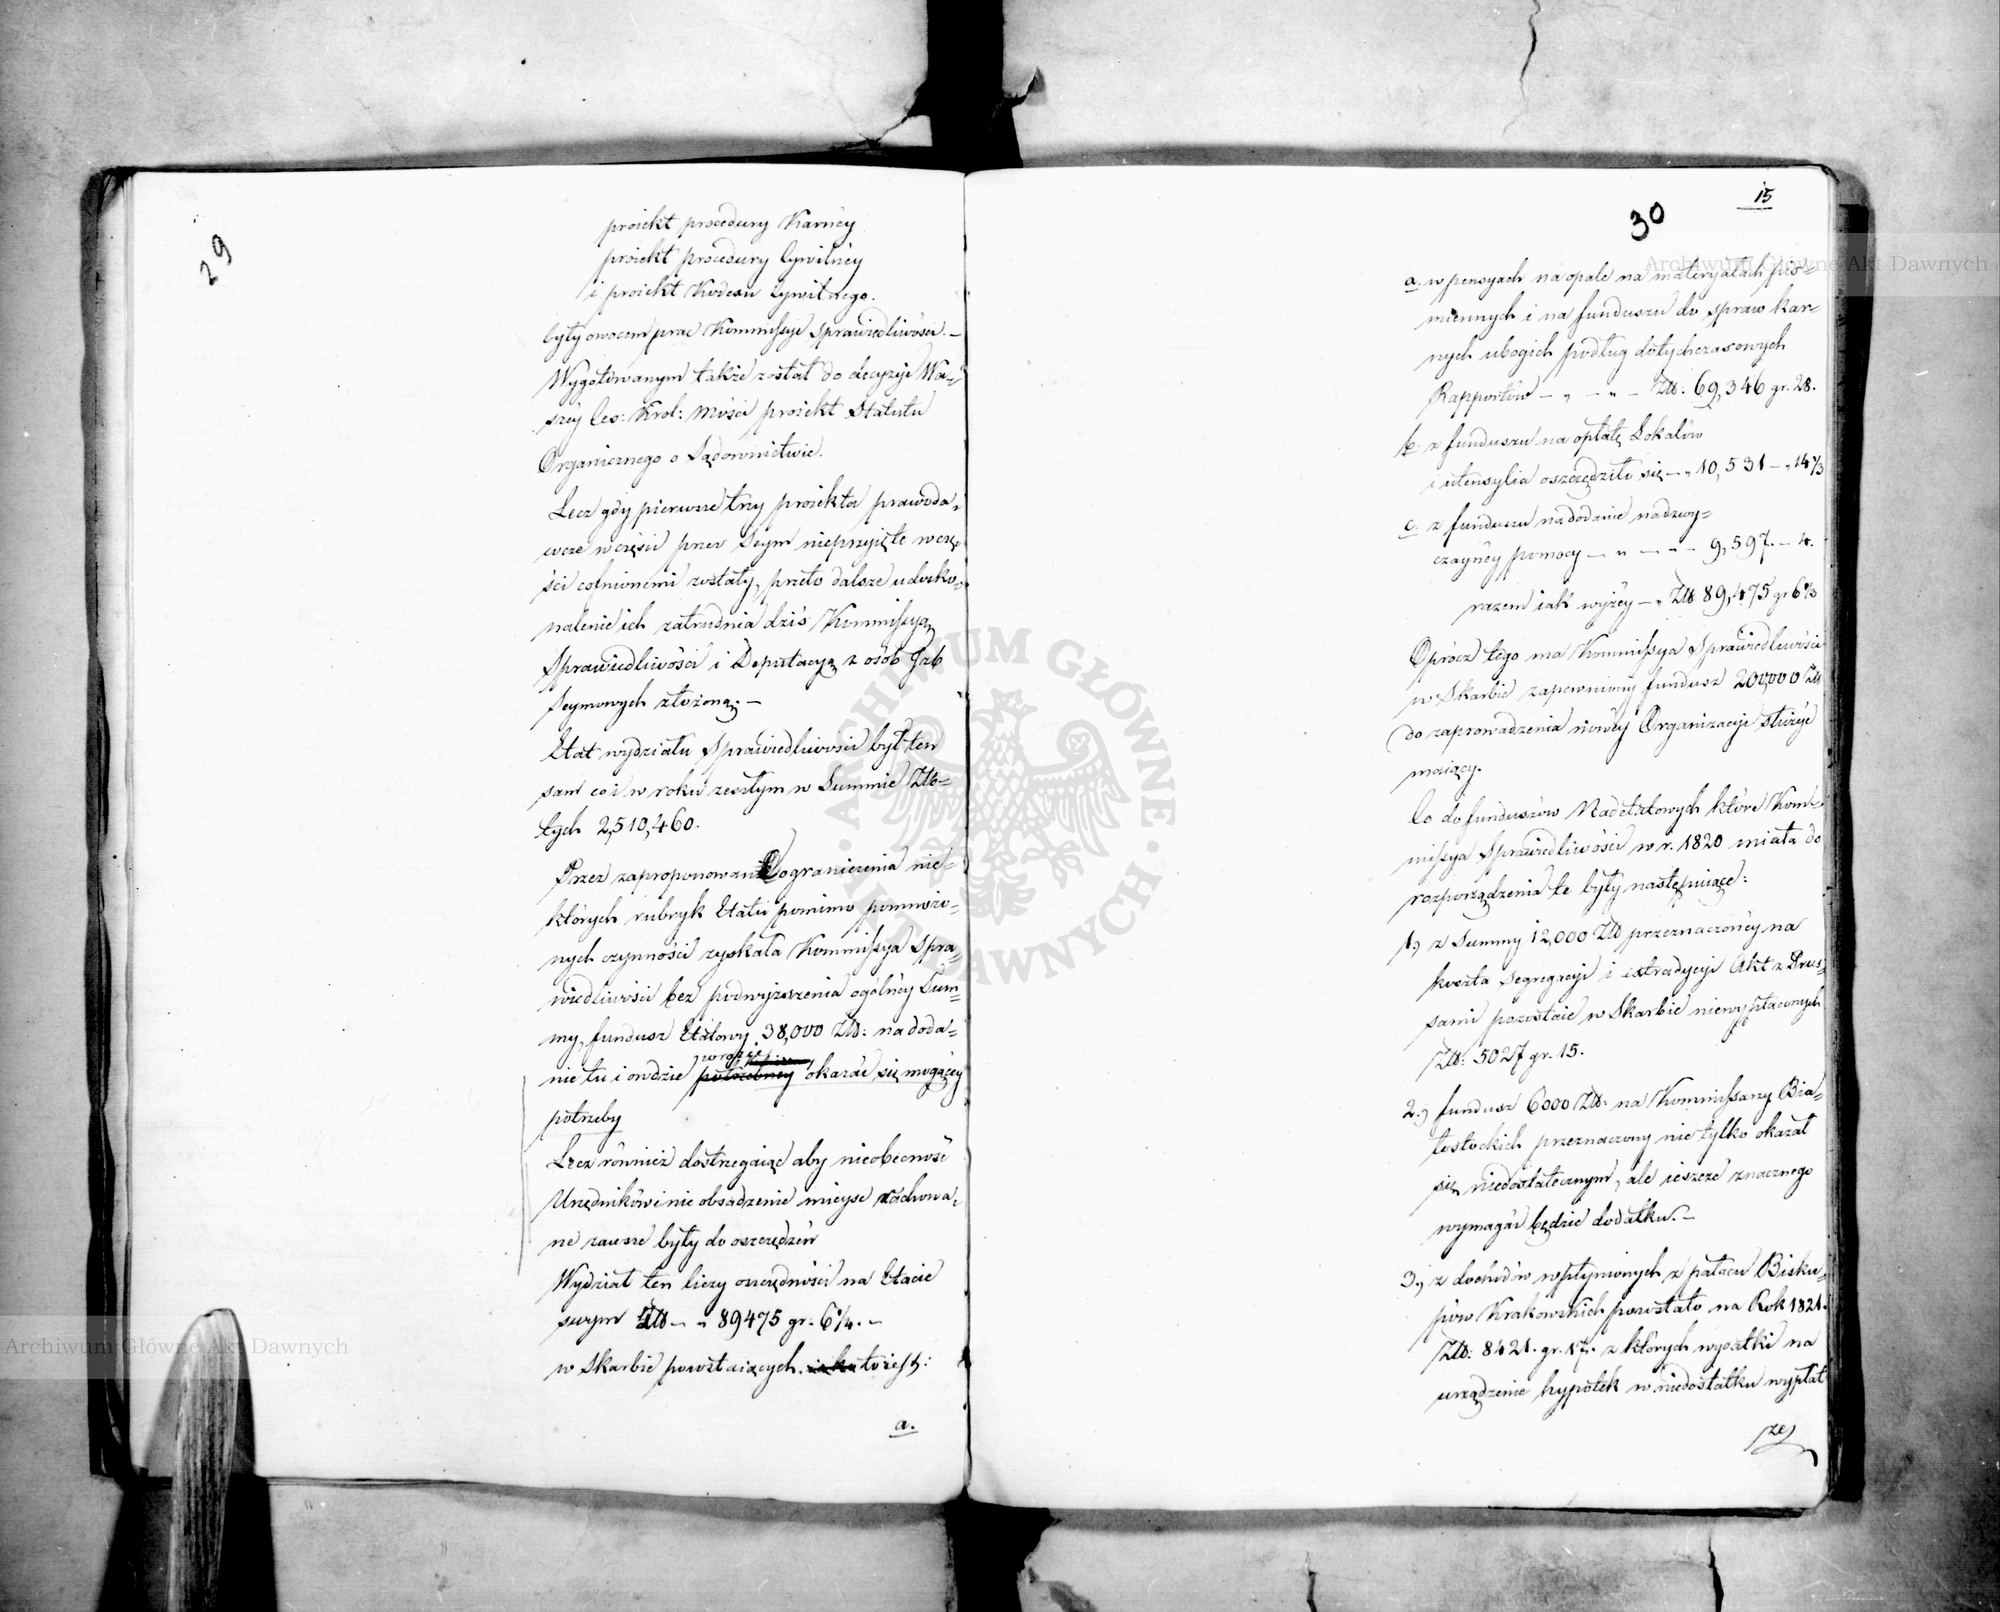 29
proiekt procedury Karnéy
proiekt procedury Cywilnéy
i proiekt Kodexu Cywilnego.
były owocem prac Kommissyi Sprawiedliwości. –
Wygotowanym także został do decyzyi Wa-
széy Ces: Krol: Mości proiekt Statutu
Organicznego o Sądownictwie.
Lecz gdy pierwsze trzy proiekta prawoda-
wcze w części przez Seym nieprzyięte w czę-
ści cofnionemi zostały, przeto dalsze udosko-
nalenie ich zatrudnia dziś Kommissyą
Sprawiedliwości i Deputacyą z osób Izb
Seymowych złożoną. –
Etat wydziału Sprawiedliwości był ten
sam co i w roku zeszłym w Summie Zło-
tych 2,510,460.
Przez zaproponowane ograniczenia nie-
których rubryk Etatu pomimo pomnożo-
nych czynności zyskała Kommissya Spra-
wiedliwości bez podwyższenia ogólnéy Sum-
my, fundusz Etatowy 38,000 Zł: na doda-
nie tu i owdzie potrzebnéy w razie okazać się mogącéy
potrzeby
Lecz również dostrzegaiąc aby nieobecność
Urzędników i nie obsadzenie mieysc rachowa-
ne zawsze były do oszczędzeń
Wydział ten liczy oszczędności na Etacie
swym Zł – „ 89475 gr. 6 1/4. –
w Skarbie pozostaiących to iest:
a.
15
30
a. w pensyach na opale na materyałach piś-
miennych i na funduszu do spraw kar-
nych ubogich podług dotychczasowych
Rapportów – „ – „ – Zł: 69,346 gr. 28.
b. z funduszu na opłatę Lokalów
i utensylia oszczędziło się – „ 10,531 – „ 14 1/3
c. z funduszu na dodanie nadzwy-
czaynéy pomocy – „ – „ – 9,597. – 4.
razem iak wyżéy – „ Zł 89,475 gr 6 1/3
Oprócz tego ma Kommissya Sprawiedliwości
w Skarbie zapewniony fundusz 200,000 Zł
do zaprowadzenia nowéy Organizacyi służyć
maiący.
Co do funduszów Nadetatowych które Kom-
missya Sprawiedliwości w r. 1820 miała do
rozporządzenia te były następuiące:
1.) z Summy 12,000 Zł przeznaczonéy na
koszta segregacyi i extradycyi Akt z Prus-
sami pozostaie w Skarbie niewypłaconych
Zł: 5027 gr. 15.
2.) fundusz 6000 Zł: na Kommissarzy Bia-
łostockich przeznaczony nie tylko okazał
się niedostatecznym, ale ieszcze znacznego
wymagać będzie dodatku. –
3.) z dochodów wpłynionych z pałacu Bisku-
pów Krakowskich pozostało na Rok 1821.
Zł: 8421. gr. 17. z których wydatki na
urządzenie hypotek w niedostatku wypłat
ze
Archiwum Główne Akt Dawnych
Archiwum Główne Akt Dawnych
ARCHIWUM GŁÓWNE · AKT DAWNYCH ·